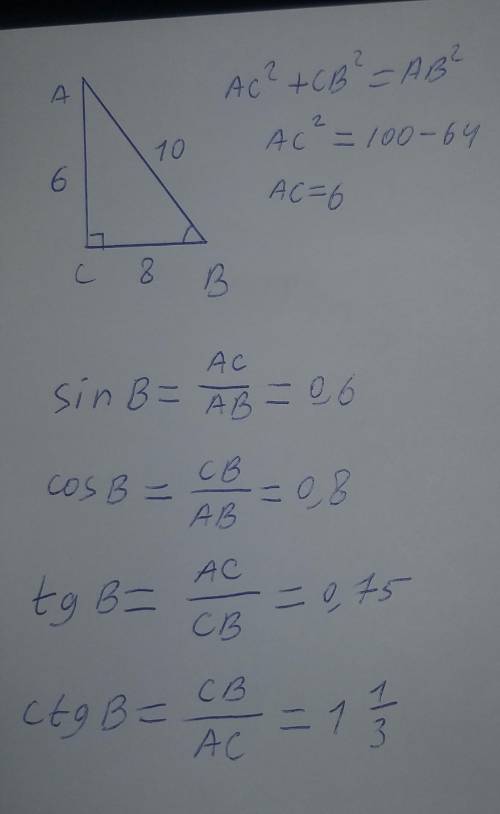 A
6
10
C
8
B
AC² + CB² = AB²
AC² = 100 - 64
AC = 6
sin B = AC/AB = 0,6
cos B = CB/AB = 0,8
tg B = AC/CB = 0,75
ctg B = CB/AC = 1 1/3